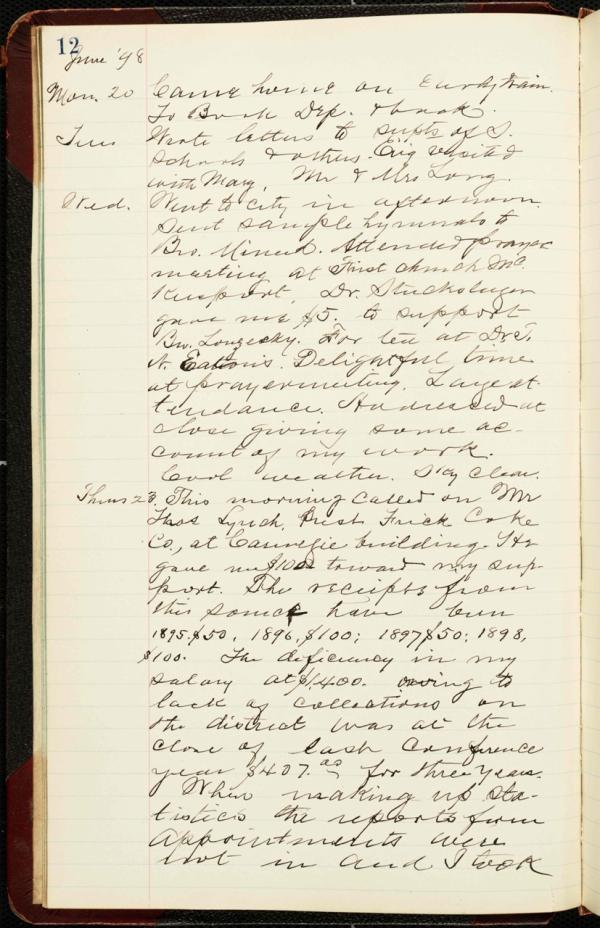 12
June '98
Mon. 20 Came home on early train.
To Book Dep. & bank.
Tues Wrote letters to supts of S.
schools & others. Eig visited
with Mary, Mr & Mrs Long.
Wed. Went to city in afternoon.
Sent sample hymnals to
Bro. Attended prayer
meeting at First church Mc.
Keesport. Dr.
gave me $5. to support
Bro. For tea at Dr. T.
N. Eaton's. Delightful time
at prayermeeting. Large at-
tendance. Addressed at
close giving some ac-
count of my work.
Cool weather. Sky clear.
Thurs 23. This morning called on Mr
Thos Lynch, Prest Frick Coke
Co., at Carnegie building. He
gave me $100 toward my sup-
port. The receipts from
this source have been
1895. $50, 1896, $100; 1897 $50; 1898,
$100. The deficiency in my
salary at $1,400. owing to
lack of collections on
the district was at the
close of last Conference
year $407. for three years.
When making up sta-
tistics the reports from
appointments were
not in and I took